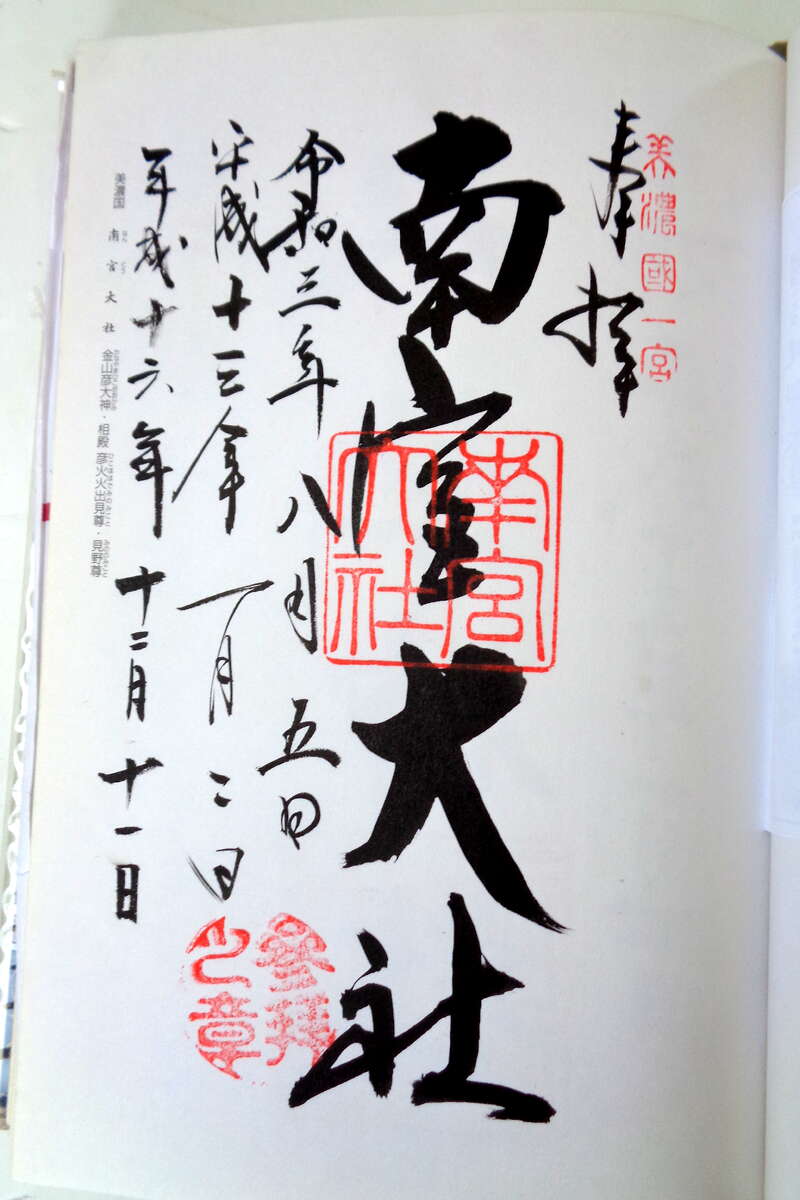 美濃國一宮
奉拝
南宮大社
南宮大社
令和三年八月五日
參拜之章
平成十三年一月二日
平成十六年十二月十一日
美濃国 南宮大社 金山彦大神・相殿 彦火火出見尊・見野尊